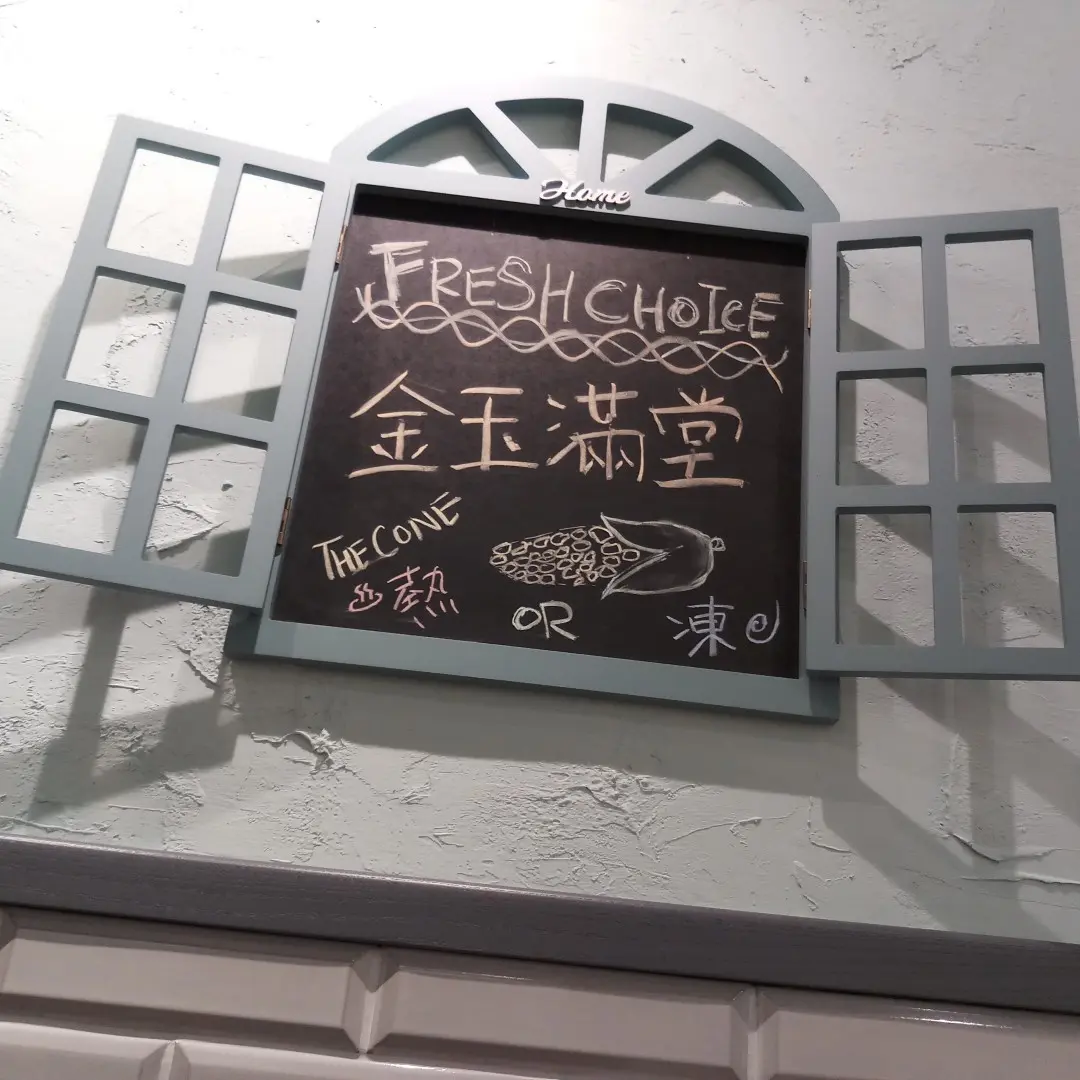 Home
FRESH CHOICE
金玉滿堂
THE CONE
熱 OR 凍